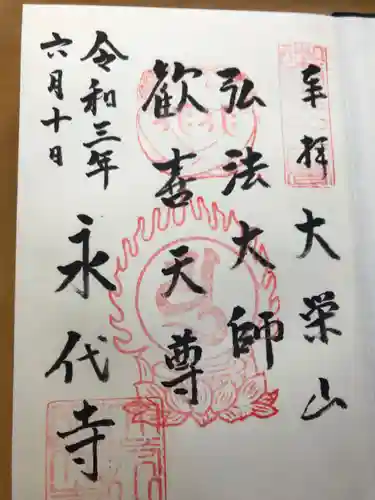 奉拝
大栄山
弘法大師
歓喜天尊
令和三年
六月十日
永代寺